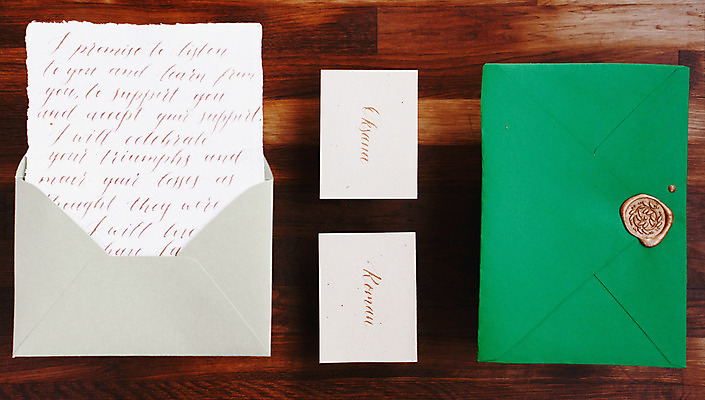 I promise to listen
to you and learn from
you, to support you
and accept your support.
I will celebrate
your triumphs and
mour your losses as
thought they were
I will love
have
Oksana
Roman